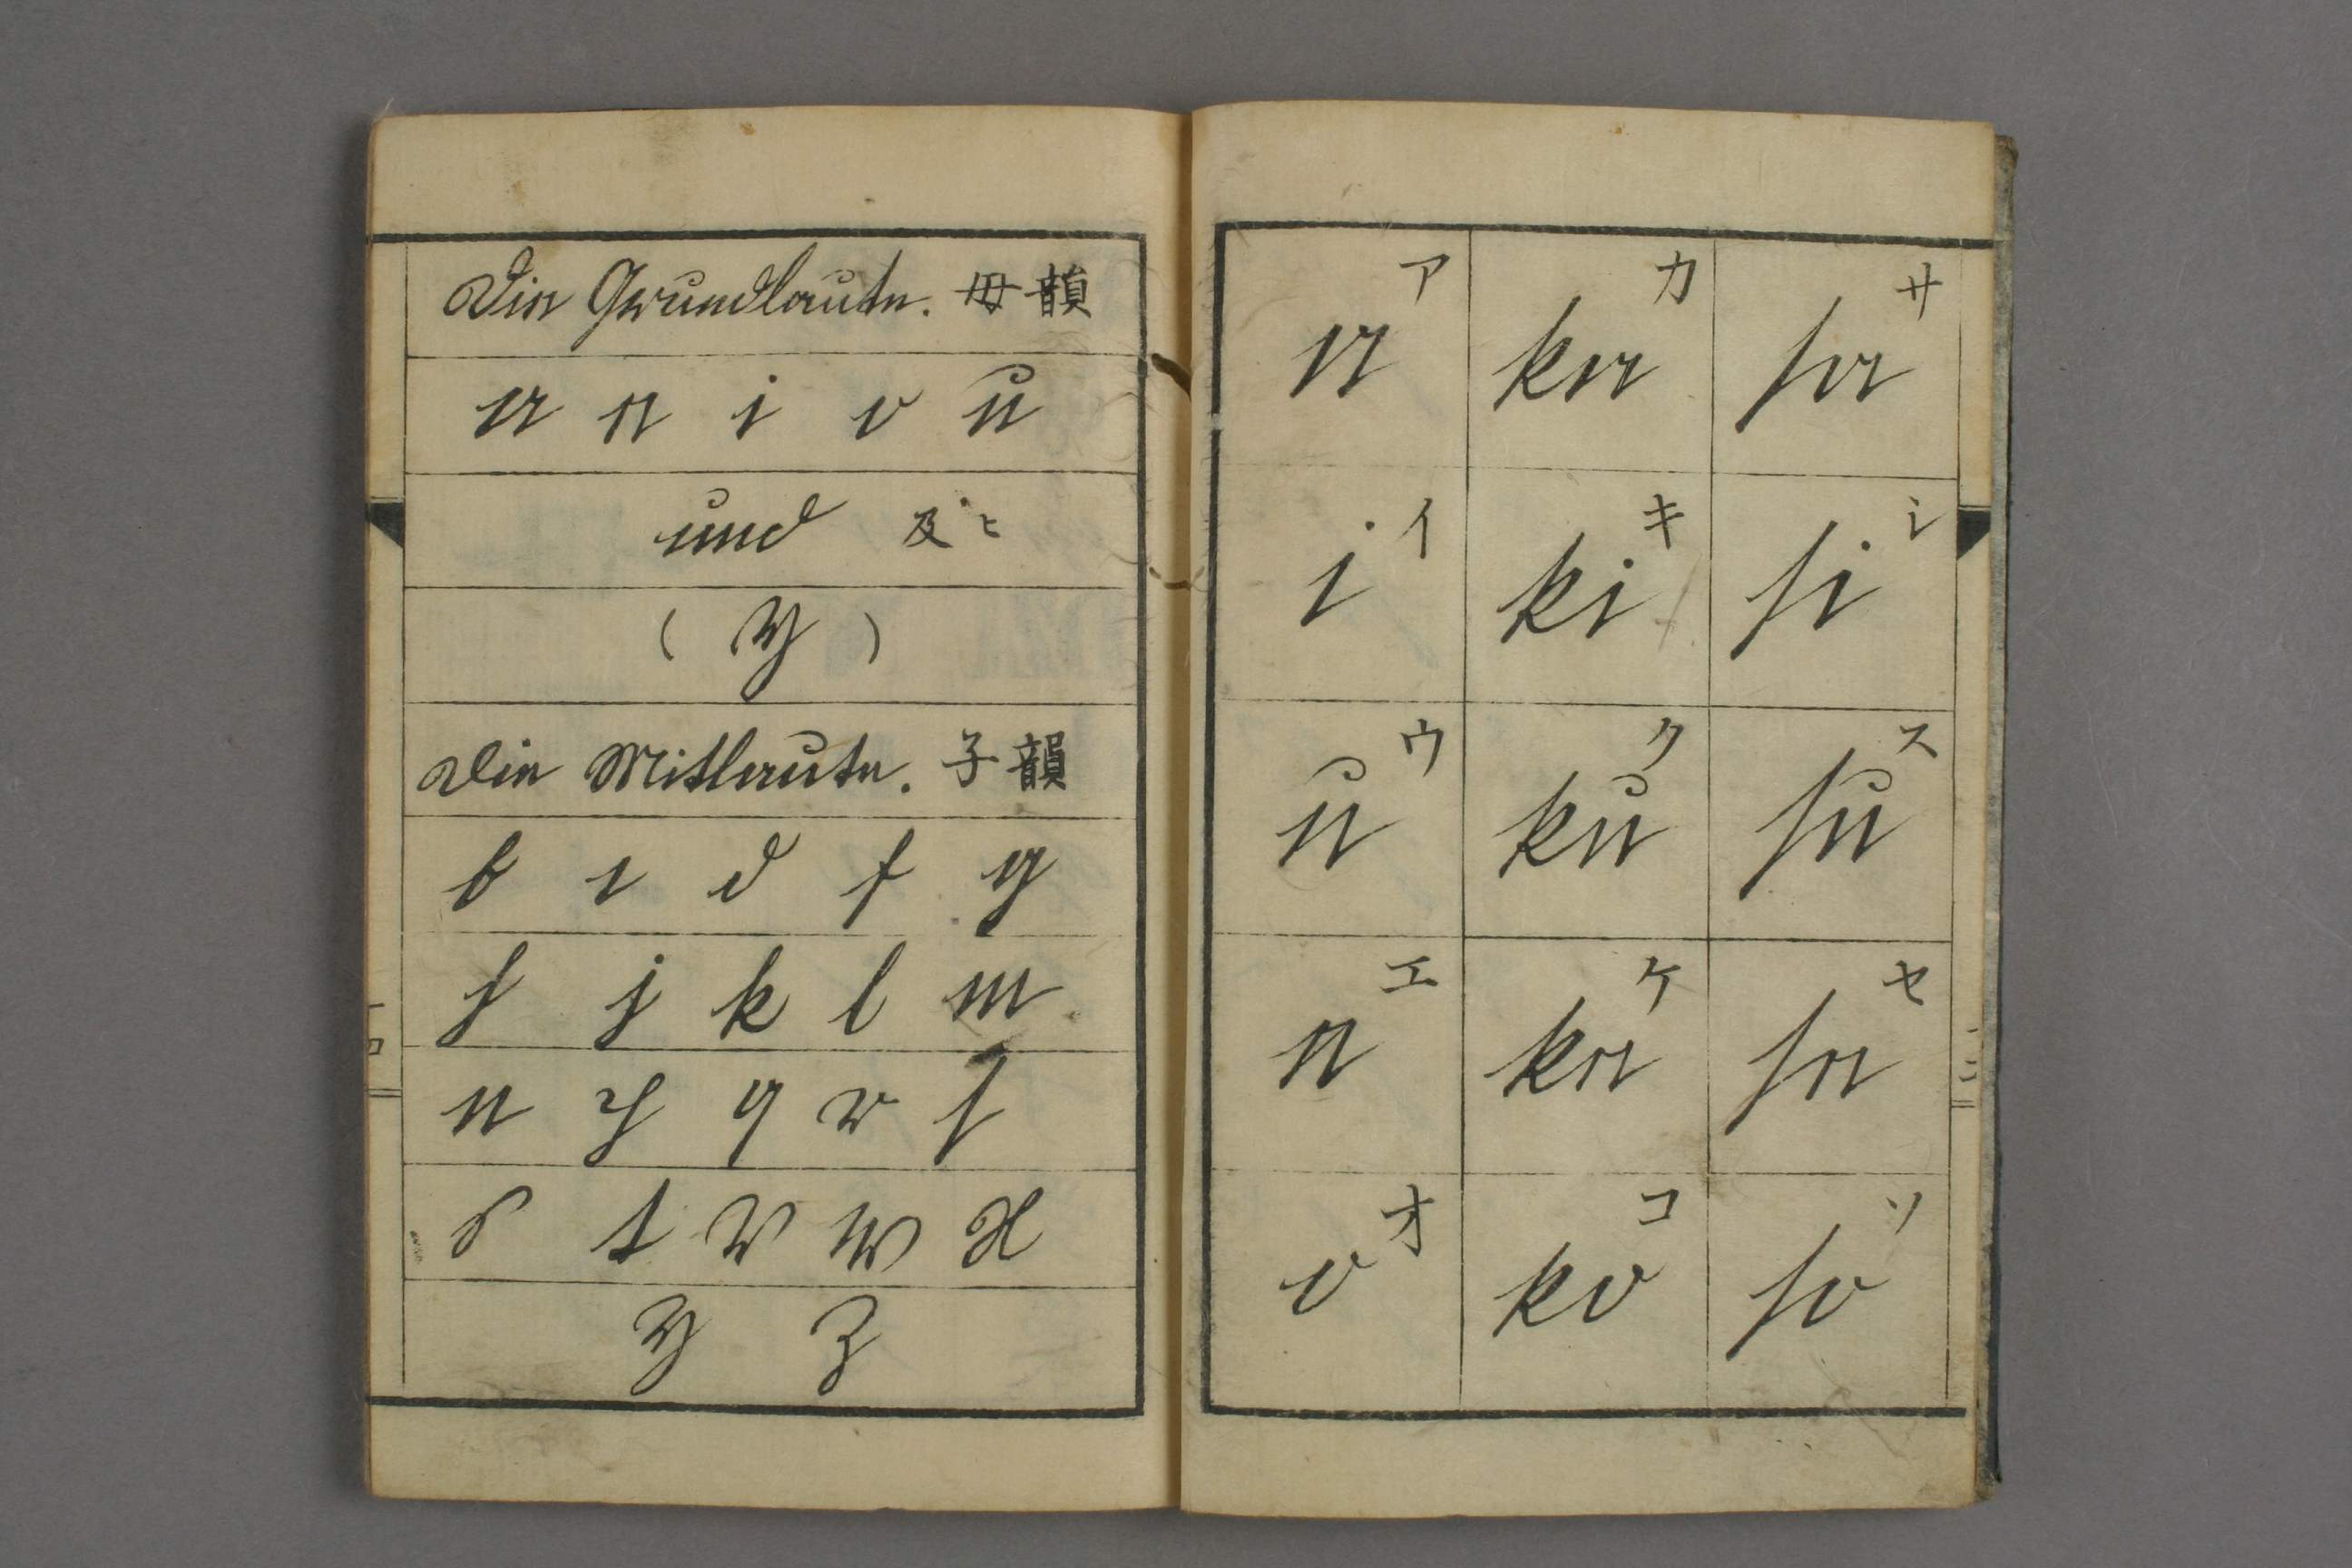 Die Grundlaute. 母韻
a e i o u
und 及ヒ
( y )
Die Mitlaute. 子韻
b c d f g
h j k l m
n p q r ſ
s t v w x
y z
ア カ サ
a ka ſa
イ キ シ
i ki ſi
ウ ク ス
u ku ſu
エ ケ セ
e ke ſe
オ コ ソ
o ko ſo